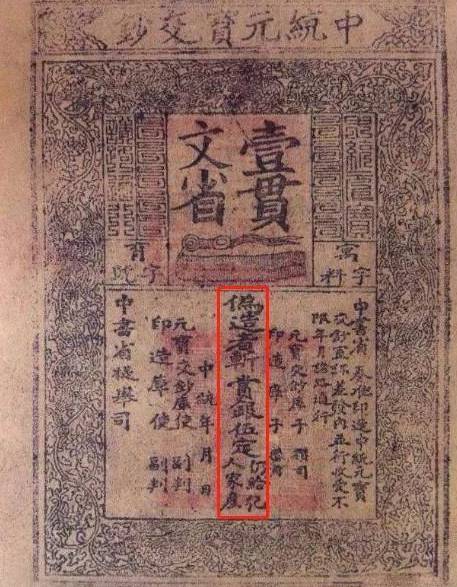 中統元寶交鈔
壹貫
文省
字料
字號
中書省 奏准印造中統元寶
交鈔宣課差發內並行收受不
限年月諸路通行
元寶交鈔庫子 攢司
印造庫子 攢司
偽造者斬賞銀伍定仍給犯人家產
中統 年 月 日
元寶交鈔庫使 副判
印造庫使 副判
中書省提舉司